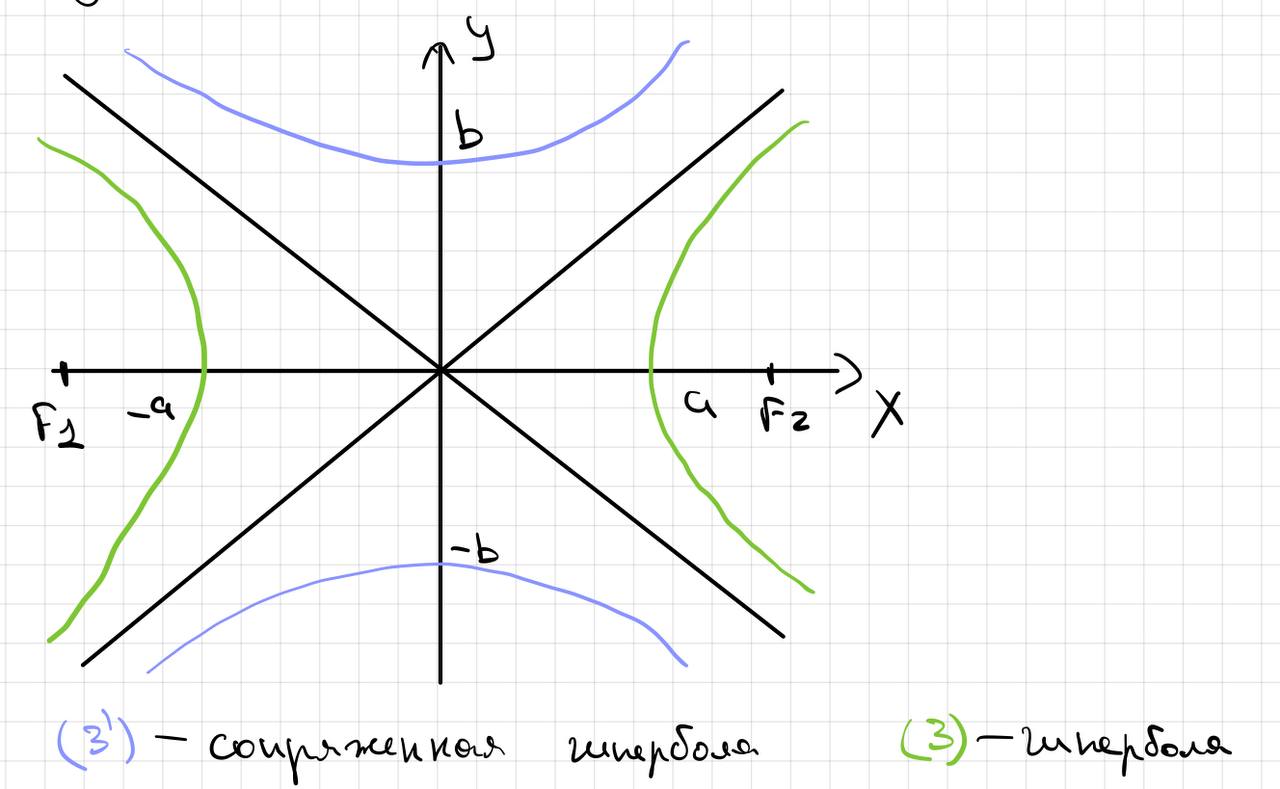 y
b
F1 -a a F2 x
-b
(3') - сопряженная гипербола (3) - гипербола